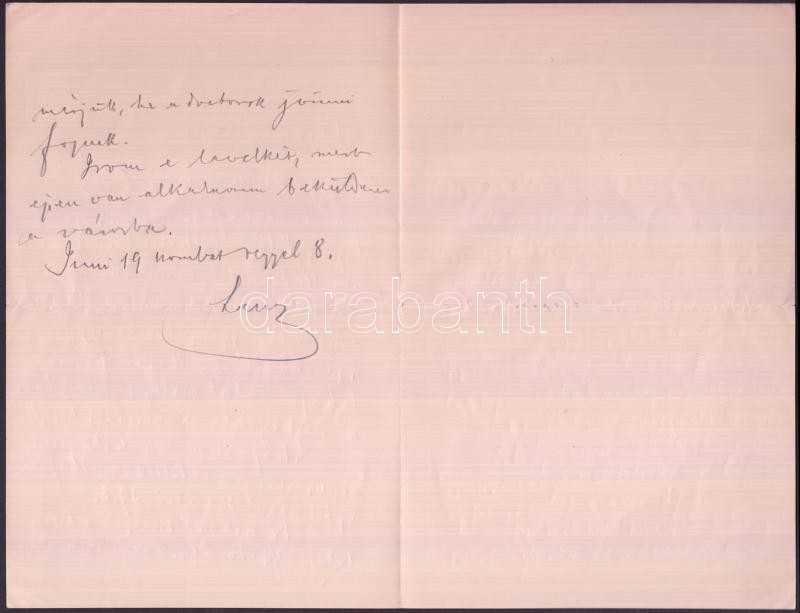 ha a doctorok jönni
fognak.
Irom e levelkét, mert
épen van alkalmam beküldeni
a városba.
Juni 19 szombat reggel 8.
darabanth